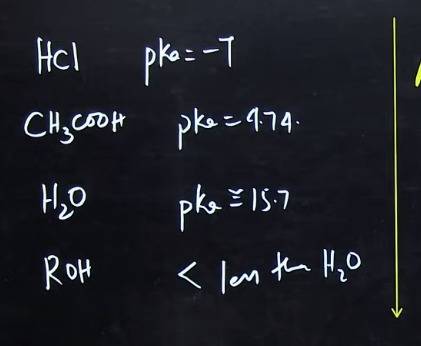 HCl pka = -7
CH₃COOH pka = 4.74.
H₂O pka ≅ 15.7
ROH < less than H₂O